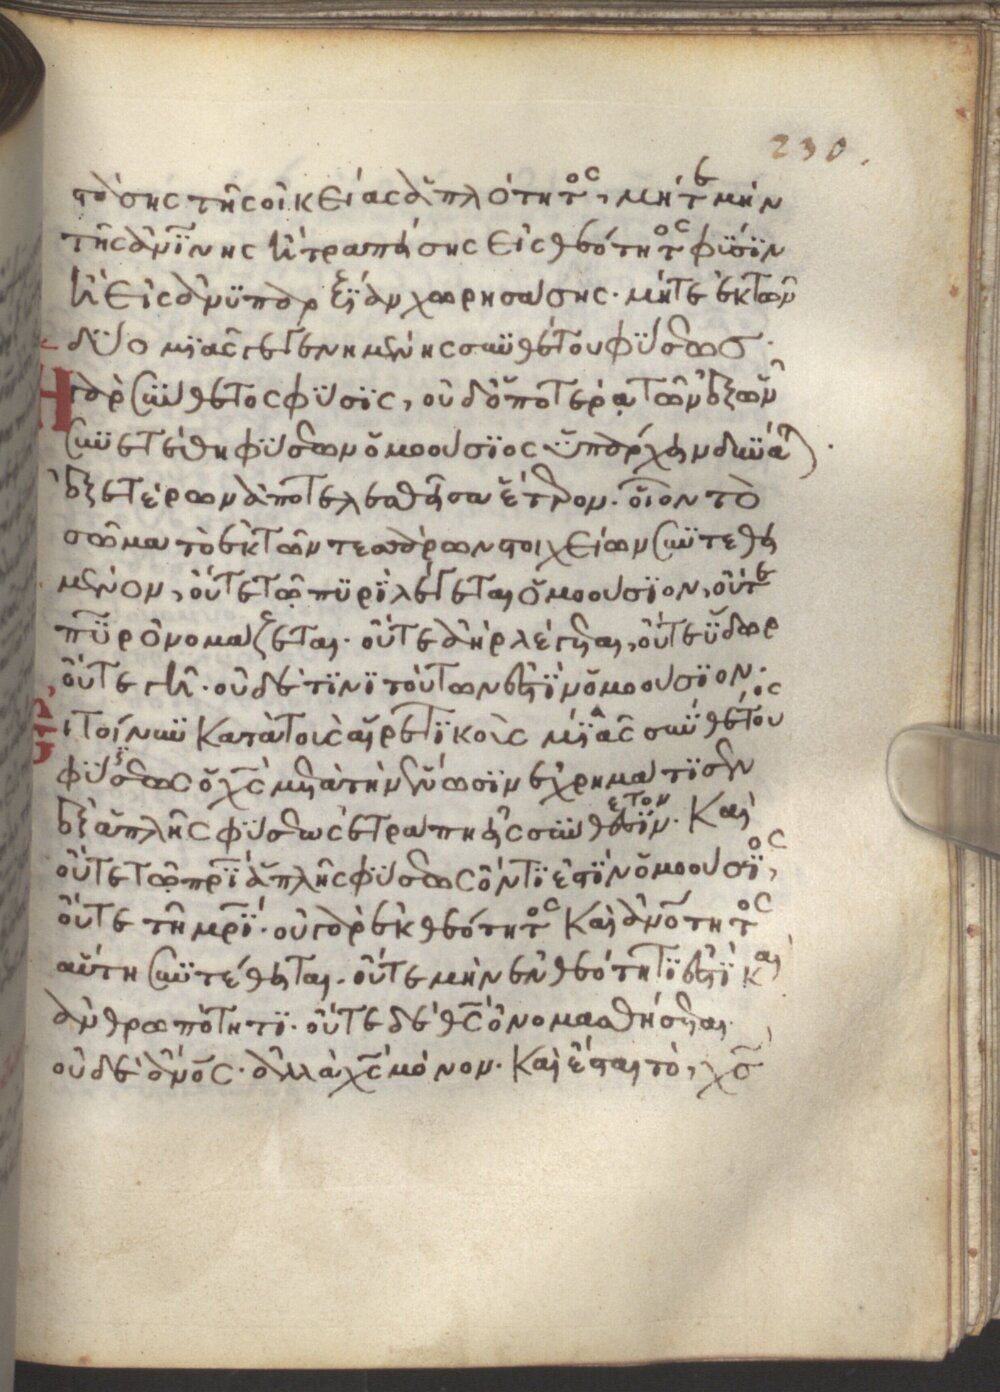 230.
στάσης τῆς οἰκείας ἁπλότητος, μήτε μὴν
τῆς ἀνῑνης ἢ τραπείσης εἰς θεότητος φύσιν
ἢ εἰς ἀνυπαρξίαν χωρησάσης· μήτε ἐκ τῶν
δύο μιᾶς γεγενημένης συνθέτου φύσεως·
Ἡ γὰρ σύνθετος φύσις, οὐδ' ὁποτέρᾳ τῶν ἐξ ὧν
συνετέθη φύσεων ὁμοούσιος ὑπάρχειν δύναται
ἐξ ἑτέρων ἀποτελεσθεῖσα ἕτερον· οἷον τὸ
σῶμα τὸ ἐκ τῶν τεσσάρων στοιχείων συντεθει
μένον, οὔτε τῷ πυρὶ λέγεται ὁμοούσιον, οὔτε
πῦρ ὀνομάζεται· οὔτε ἀὴρ λέγεται, οὔτε ὕδωρ
οὔτε γῆ· οὐδέ τινι τούτων ἐστὶν ὁμοούσιον·
Εἰ τοίνυν κατὰ τοὺς αἱρετικοὺς μιᾶς συνθέτου
φύσεως ὁ χς μετὰ τὴν ἕνωσιν ἐχρημάτισεν
ἐξ ἁπλῆς φύσεως ἐτράπη εἰς σύνθετον· Καὶ
οὔτε τῷ πρὶ ἁπλῆς φύσεως ὄντι ἐστὶν ὁμοούσιος,
οὔτε τῇ μρὶ· οὐ γὰρ ἐκ θεότητος καὶ ἀνότητος
αὕτη συντέθειται· οὔτε μὴν ἐν θεότητι ἐστὶ καὶ
ἀνθρωπότητι· οὔτε δὲ θς ὀνομασθήσεται·
οὐδὲ ἀνος· ἀλλὰ χς μόνον· Καὶ ἔσται τὸ, χς